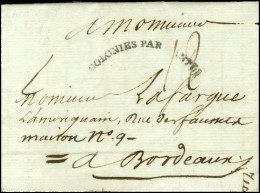 a Monsieur
COLONIES PAR
Monsieur Lafargue
L'amériquain, Rue des faussets
maison N°. 9-
= a Bordeaux